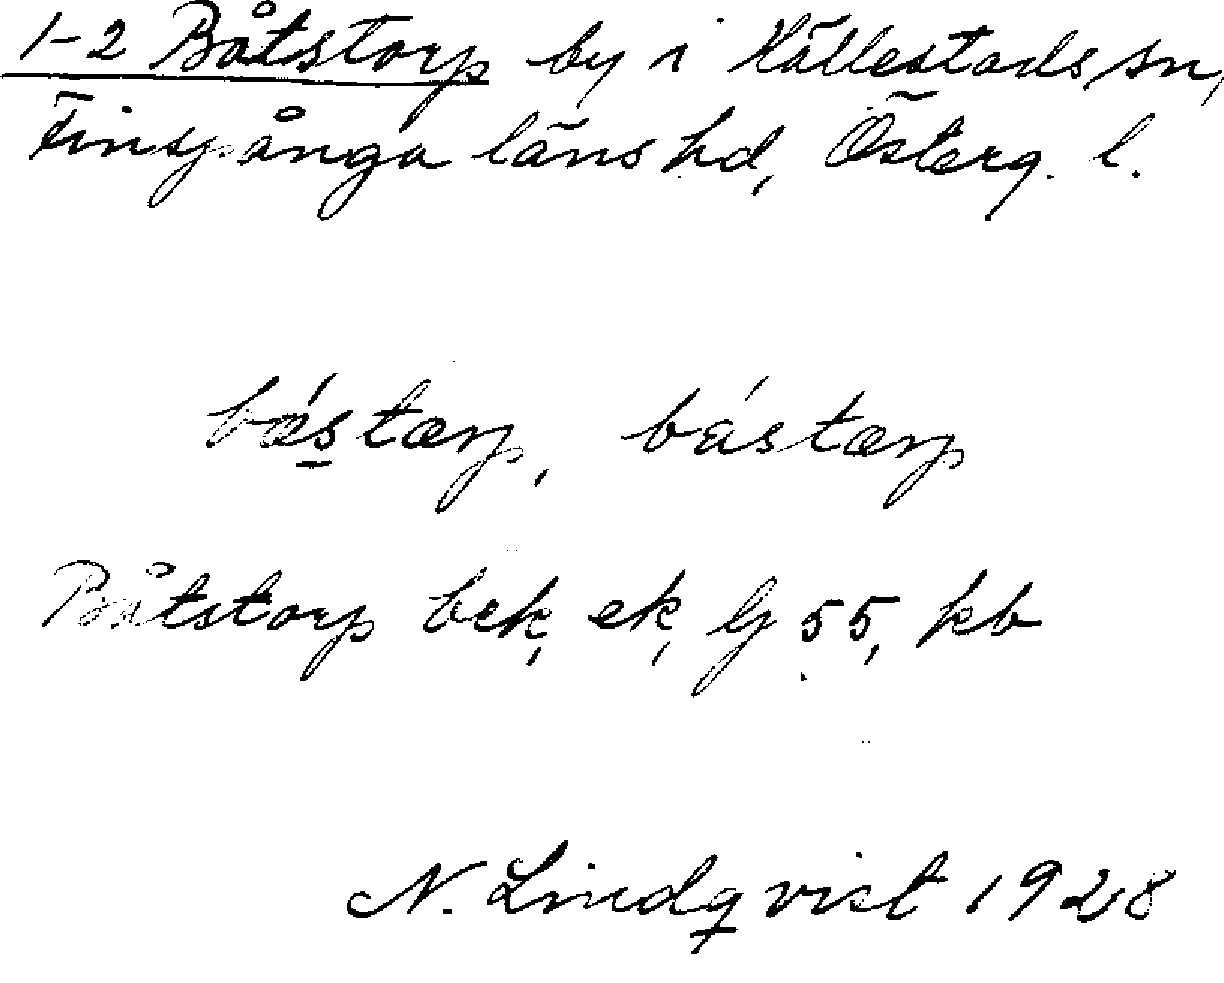 1-2 Båtstorp by i Hällestads sn,
Finspånga läns hd, Österg. l.
bástærp, bástærp
Båtstorp bek, ek, lj 55, kb
N. Lindqvist 1928